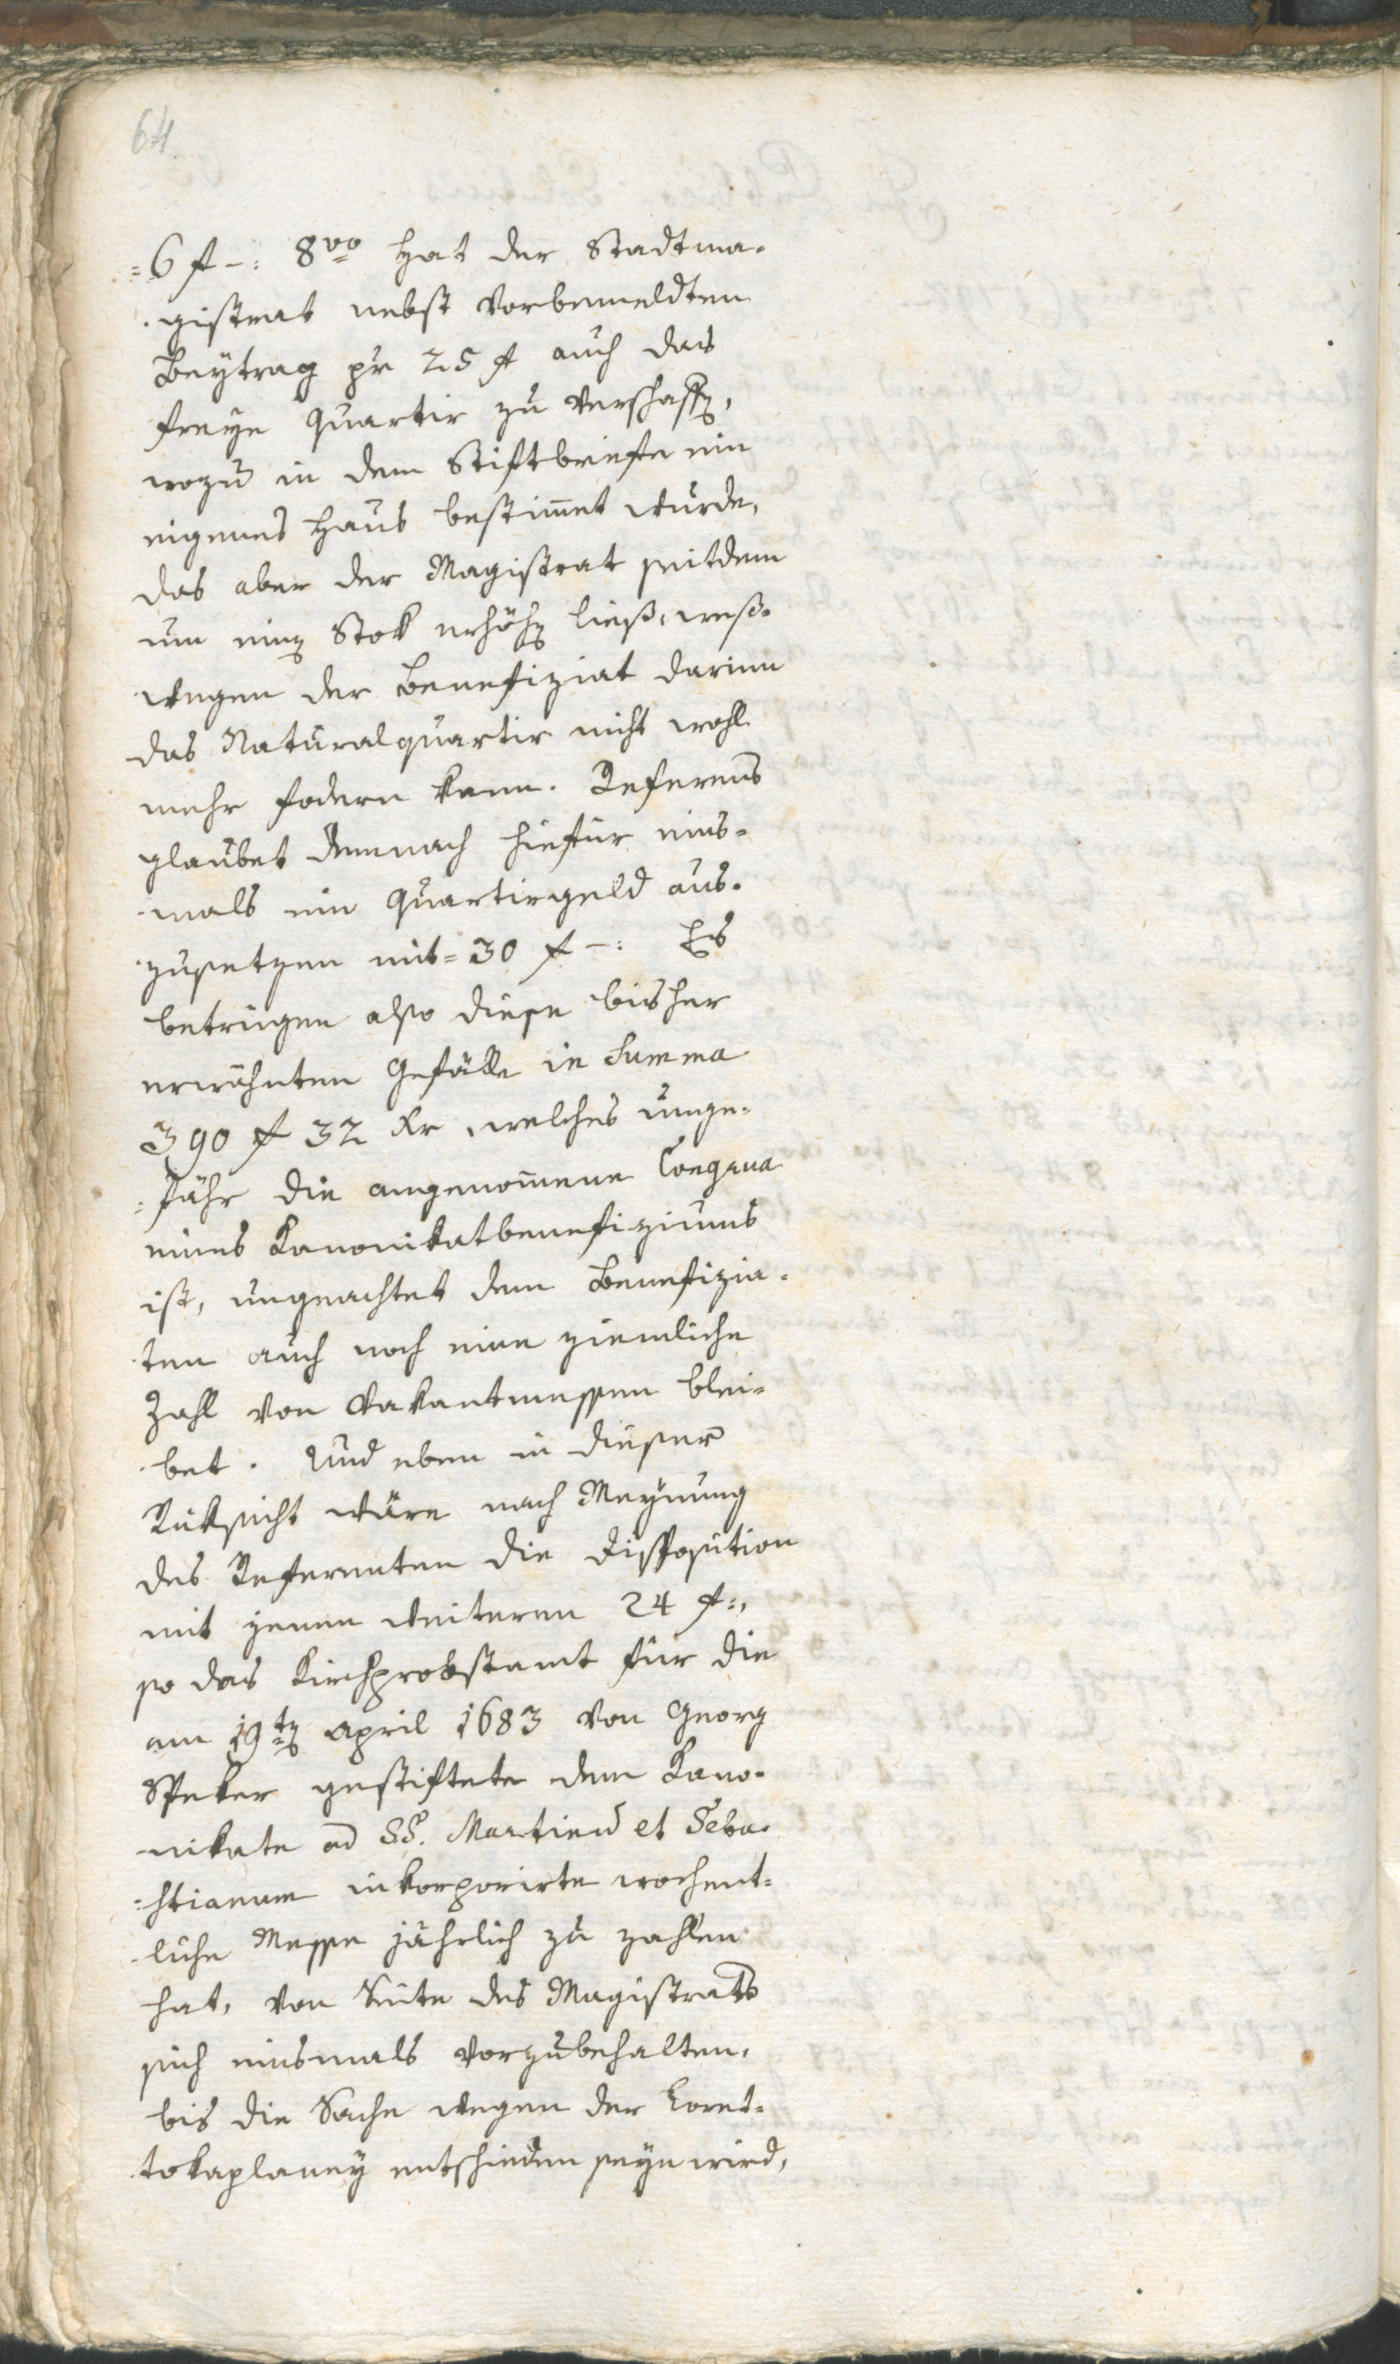 64
=6 f –: 8vo hat der Stadtma-
-gistrat nebst vorbemeldten
Beytrag pr 25 f auch das
freye Quartir zu verschaffen,
wozu in dem Stiftbriefe ein
eigenes Haus bestim̄et wurde,
das aber der Magistrat seitdem
um einen Stok erhöhen ließ, weß-
wegen der Benefiziat darinn
das Naturalquartir nicht wohl
mehr fodern kann. Referens
glaubet demnach hiefür eins-
-mals ein Quartirgeld aus-
-zusetzen mit = 30 f –: Es
betrügen also diese bisher
erwähnten Gefälle in Summa
390 f 32 Kr, welches unge-
=fähr die angenom̄ene Congrua
eines Kanonikatbenefiziums
ist, ungeachtet dem Benefizia-
-ten auch noch eine ziemliche
Zahl von Vakantmessen blei-
-bet. Und eben in dieser
Rüksicht wäre nach Meynung
des Referenten die Disposition
mit jenen weiteren 24 f:,
so das Kirchprobstamt für die
am 19ten April 1683 von Georg
Speker gestiftete dem Kano-
-nikate ad SS. Martinū et Seba-
=stianum inkorporirte wochent-
-liche Messe jährlich zu zahlen
hat, von Seite des Magistrats
sich einsmals vorzubehalten,
bis die Sache wegen der Loret-
-tokaplaney entschieden seyn wird,